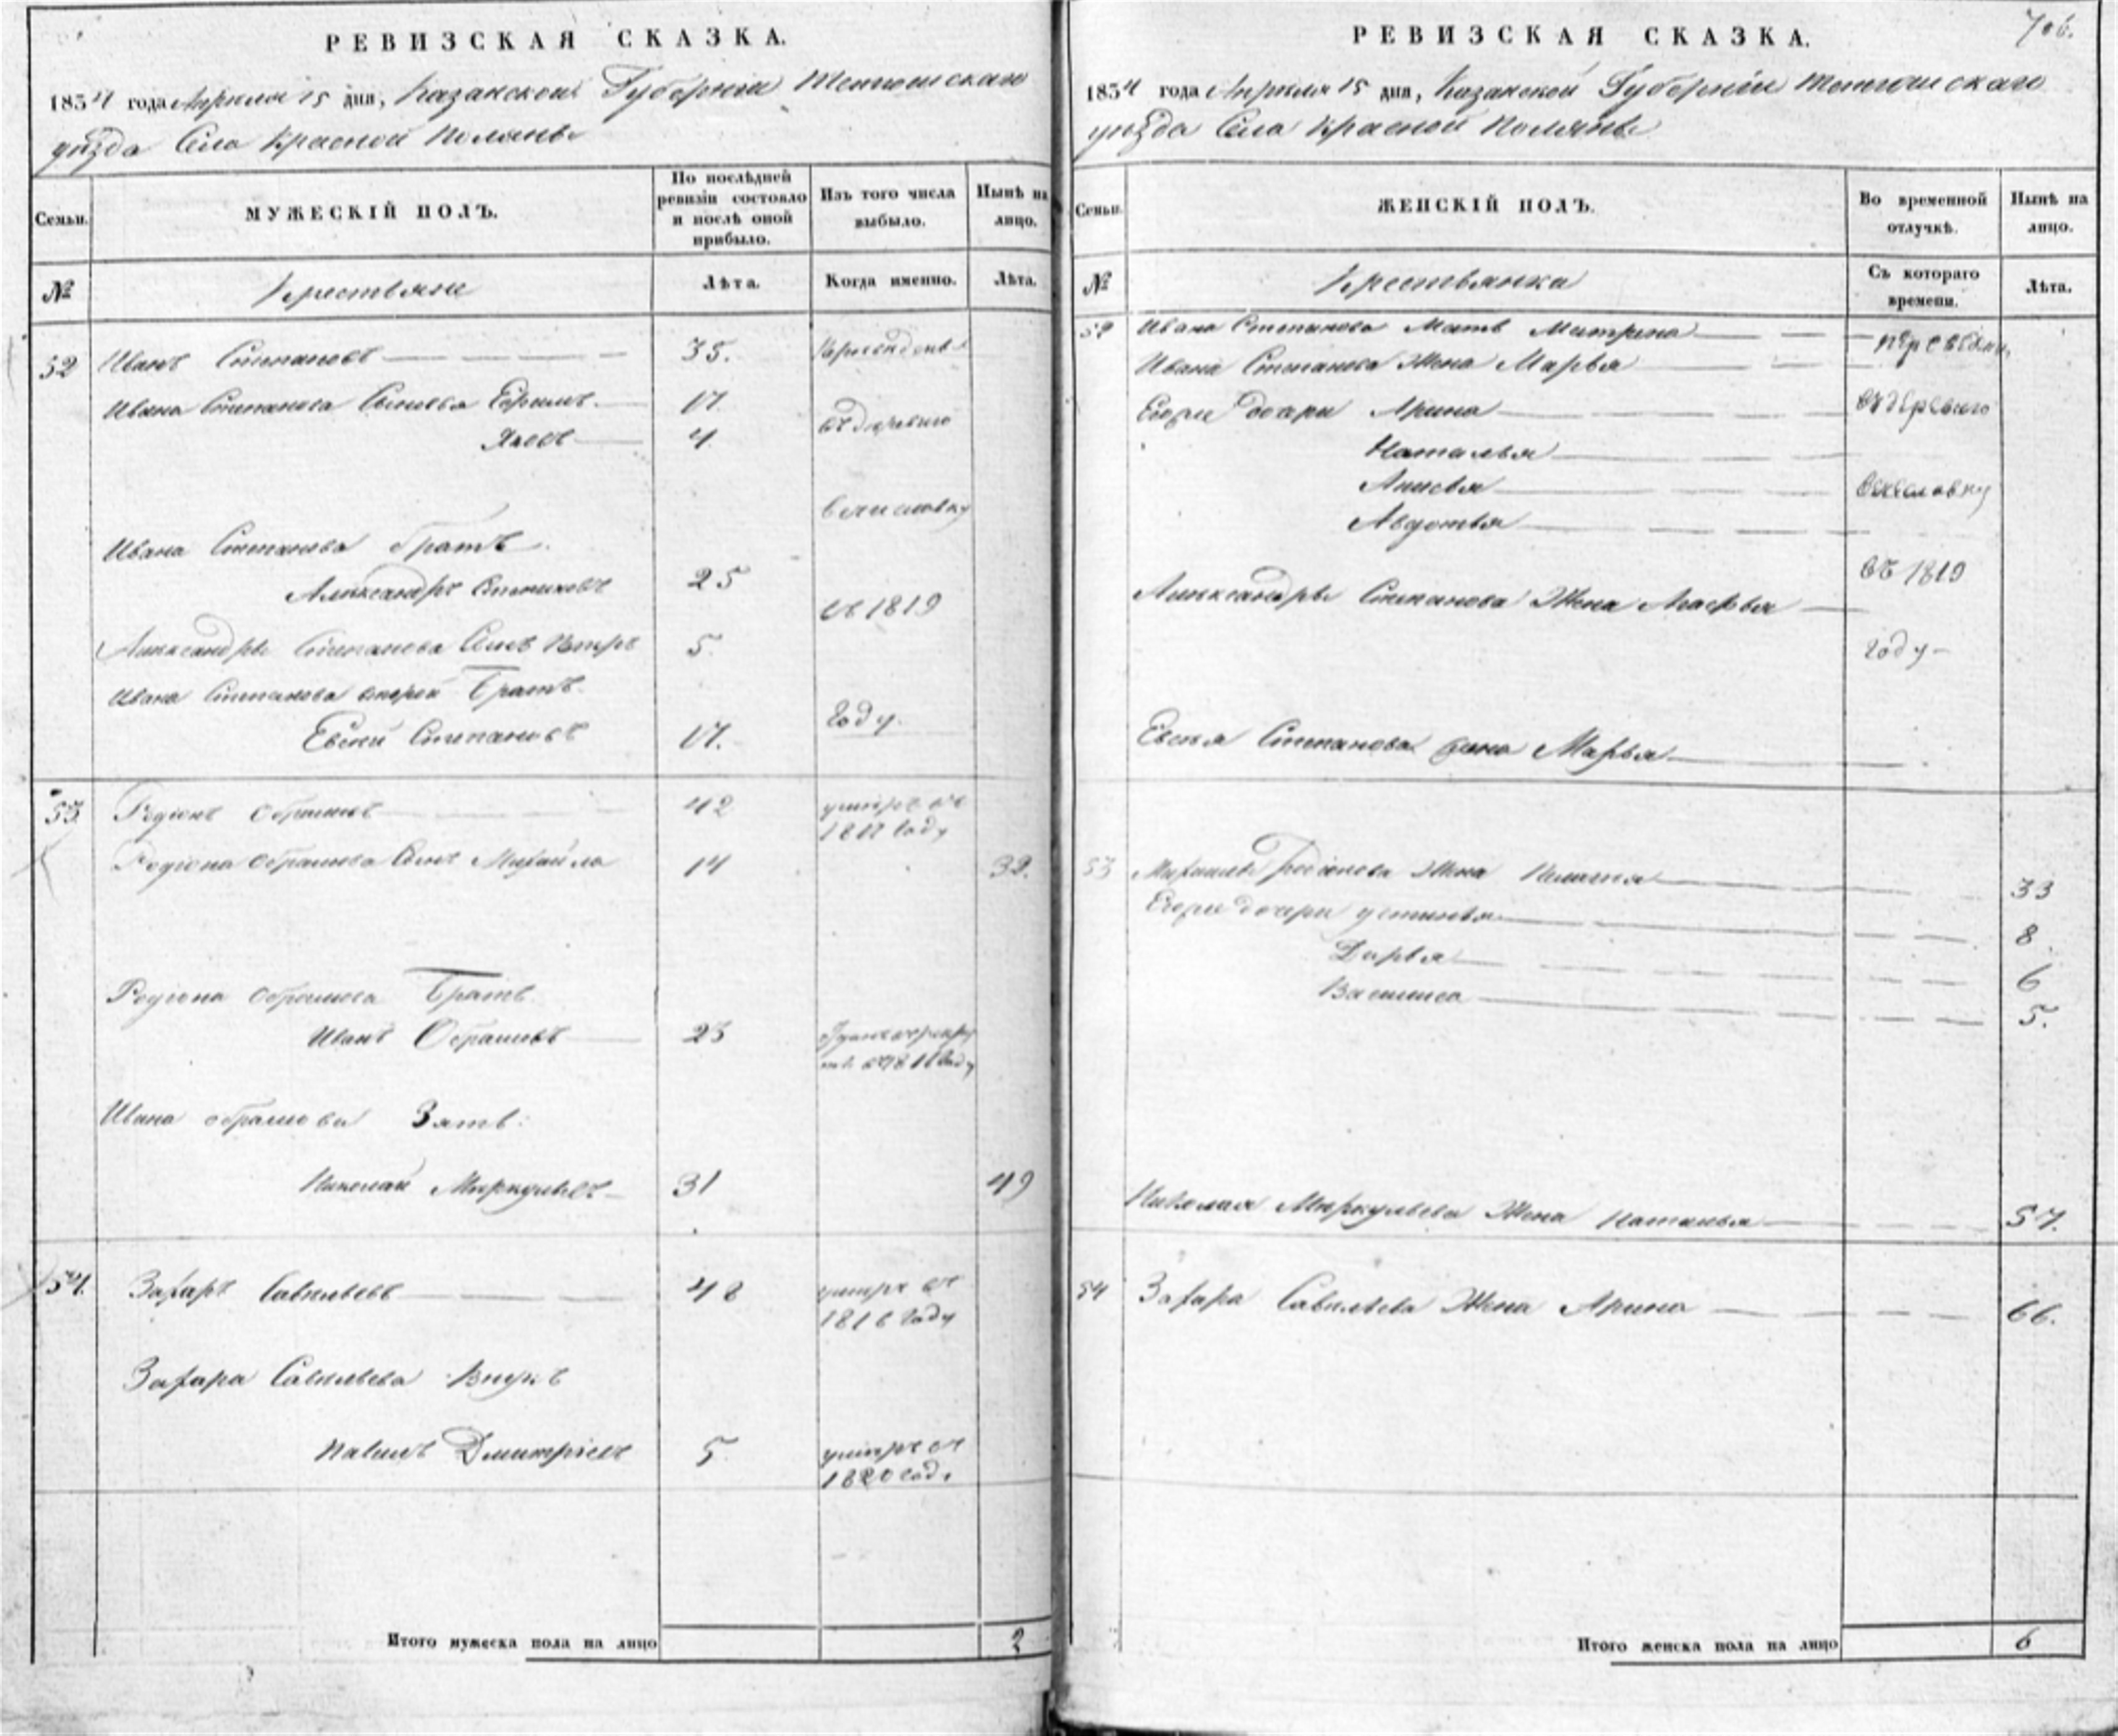 РЕВИЗСКАЯ СКАЗКА.
1834 года Апреля 15 дня, Казанской Губернии Тетюшскаго
уѣзда Села Красной Поляны
Семьи.
МУЖЕСКІЙ ПОЛЪ.
По послѣдней ревизіи состояло и послѣ оной прибыло.
Изъ того числа выбыло.
Нынѣ на лицо.
№
Крестьяне
Лѣта.
Когда именно.
Лѣта.
52 Иванъ Степановъ 35.
Ивана Степанова Сыновья Ефримъ 17
Яковъ 4.
Ивана Степанова братъ
Александръ Степановъ 25
Александры Степанова Сынъ Петръ 5.
Ивана Степанова второй Братъ
Евсей Степановъ 17.
въ деревню
въ 1819
Году.
53. Родіонъ Обрамовъ 42 умеръ въ
году
Родіона Обрамова Сынъ Михайла 14 32.
Родіона Обрамова Братъ
Иванъ Обрамовъ 23
году
Ивана обрамова Зять:
Николай Меркульевъ 31 49
54. Захаръ Савельевъ 48 умеръ въ
1816 году
Захара Савельева Внукъ
Павелъ Дмитріевъ 5 умеръ въ
1820 году
Итого мужеска пола на лицо 2
706.
РЕВИЗСКАЯ СКАЗКА.
1834 года Апреля 15 дня, Казанской Губернии Тетюшскаго
уѣзда Села Красной Поляны
Семьи.
ЖЕНСКІЙ ПОЛЪ.
Во временной отлучкѣ.
Нынѣ на лицо.
№
Крестьянка
Съ котораго времени.
Лѣта.
52 Ивана Степанова Мать Матрена
Ивана Степанова Жена Марья
Егоже дочери Арина
Наталья
Анисья
Авдотья
Александры Степанова Жена Марфа
Евсея Степанова жена Марья
въ деревню
въ 1819
году
53 Михаилы Родіонова Жена Пелагея 33
Егоже дочери устинья 8.
Дарья 6
Василиса 5.
Николая Меркульева Жена Наталья 57.
54 Захара Савельева Жена Арина 66.
Итого женска пола на лицо 6